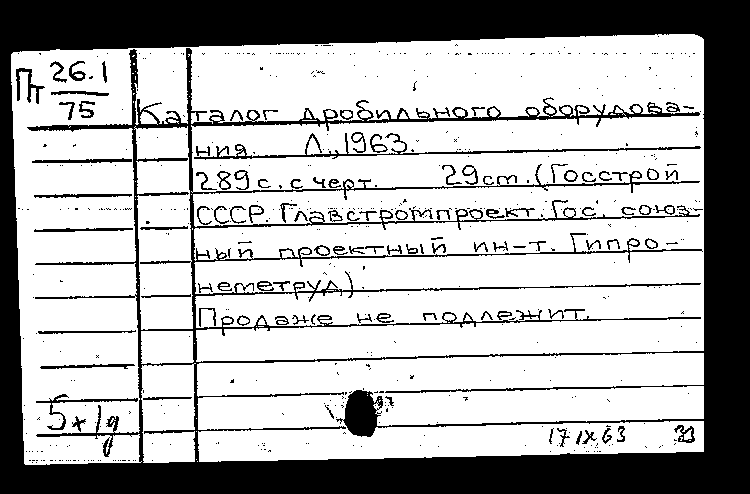 Пт 26.1
75
Каталог дробильного оборудова-
ния. Л., 1963.
289 с. с черт. 29 см. (Госстрой
СССР. Главстромпроект. Гос. союз-
ный проектный ин-т. Гипро-
неметруд).
Продаже не подлежит.
5х/д
17 IX 63